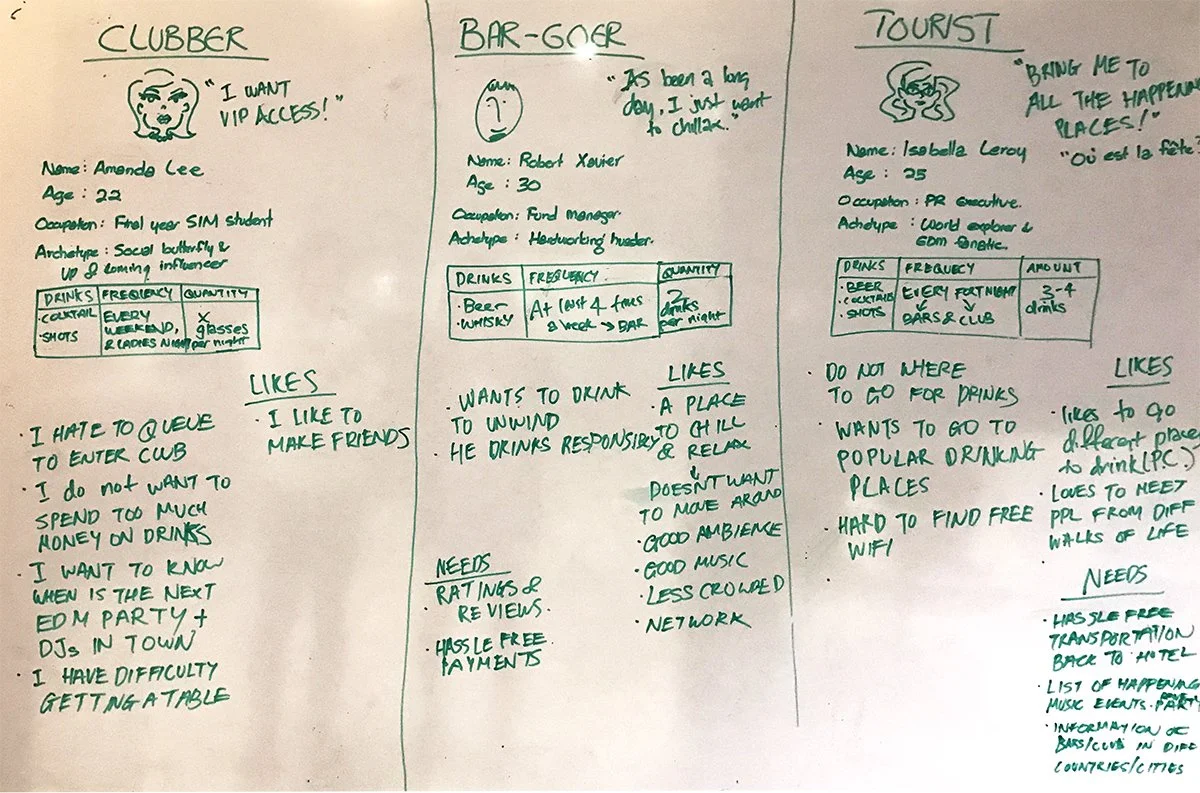 CLUBBER
"I WANT
VIP ACCESS!"
Name: Amanda Lee
Age: 22
Occupation: Final year SIM student
Archetype: Social butterfly &
up & coming influencer
DRINKS FREQUENCY QUANTITY
·COCKTAIL
·SHOTS
EVERY
WEEKEND,
& LADIES NIGHT
X
glasses
per night
LIKES
· I LIKE TO
MAKE FRIENDS
· I HATE TO QUEUE
TO ENTER CLUB
· I do not WANT TO
SPEND TOO MUCH
MONEY ON DRINKS
· I WANT TO KNOW
WHEN IS THE NEXT
EDM PARTY +
DJs IN TOWN
· I HAVE DIFFICULTY
GETTING A TABLE
BAR-GOER
"AS been a long
day, I just want
to chillax."
Name: Robert Xavier
Age: 30
Occupation: Fund manager
Achetype: Hardworking husder.
DRINKS FREQUENCY QUANTITY
·Beer
·WHISKY
At least 4 times
a week → BAR
2
drinks
per night
· WANTS TO DRINK
TO UNWIND
· HE DRINKS RESPONSIBLY
LIKES
· A PLACE
TO CHILL
& RELAX
↓
DOESN'T WANT
TO MOVE AROUND
·GOOD AMBIENCE
·GOOD MUSIC
·LESS CROWDED
·NETWORK
NEEDS
· RATINGS &
REVIEWS.
· HASSLE FREE
PAYMENTS
TOURIST
"BRING ME TO
ALL THE HAPPENING
PLACES!"
"Où est la fête?
Name: Isabella Leroy
Age: 25
Occupation: PR executive.
Achetype: World explorer &
EDM fanatic.
DRINKS FREQUECY AMOUNT
·BEER
·COCKTAIL
·SHOTS
EVERY FORTNIGHT
BARS & CLUB
3-4
drinks
· DO NOT WHERE
TO GO FOR DRINKS
· WANTS TO GO TO
POPULAR DRINKING
PLACES
· HARD TO FIND FREE
WIFI
LIKES
· likes to go
different place
to drink (P.C.)
· LOVES TO MEET
PPL FROM DIFF
WALKS OF LIFE
NEEDS
·HASSLE FREE
TRANSPORTATION
BACK TO HOTEL
·LIST OF HAPPENING
MUSIC EVENTS. PARTY
·INFORMATION OF
BARS/CLUB IN DIFF
COUNTRIES/CITIES